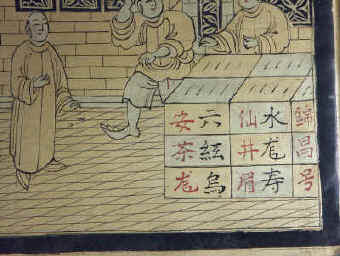 錦昌号
水仙
龙井
寿眉
六安
紅茶
烏龙